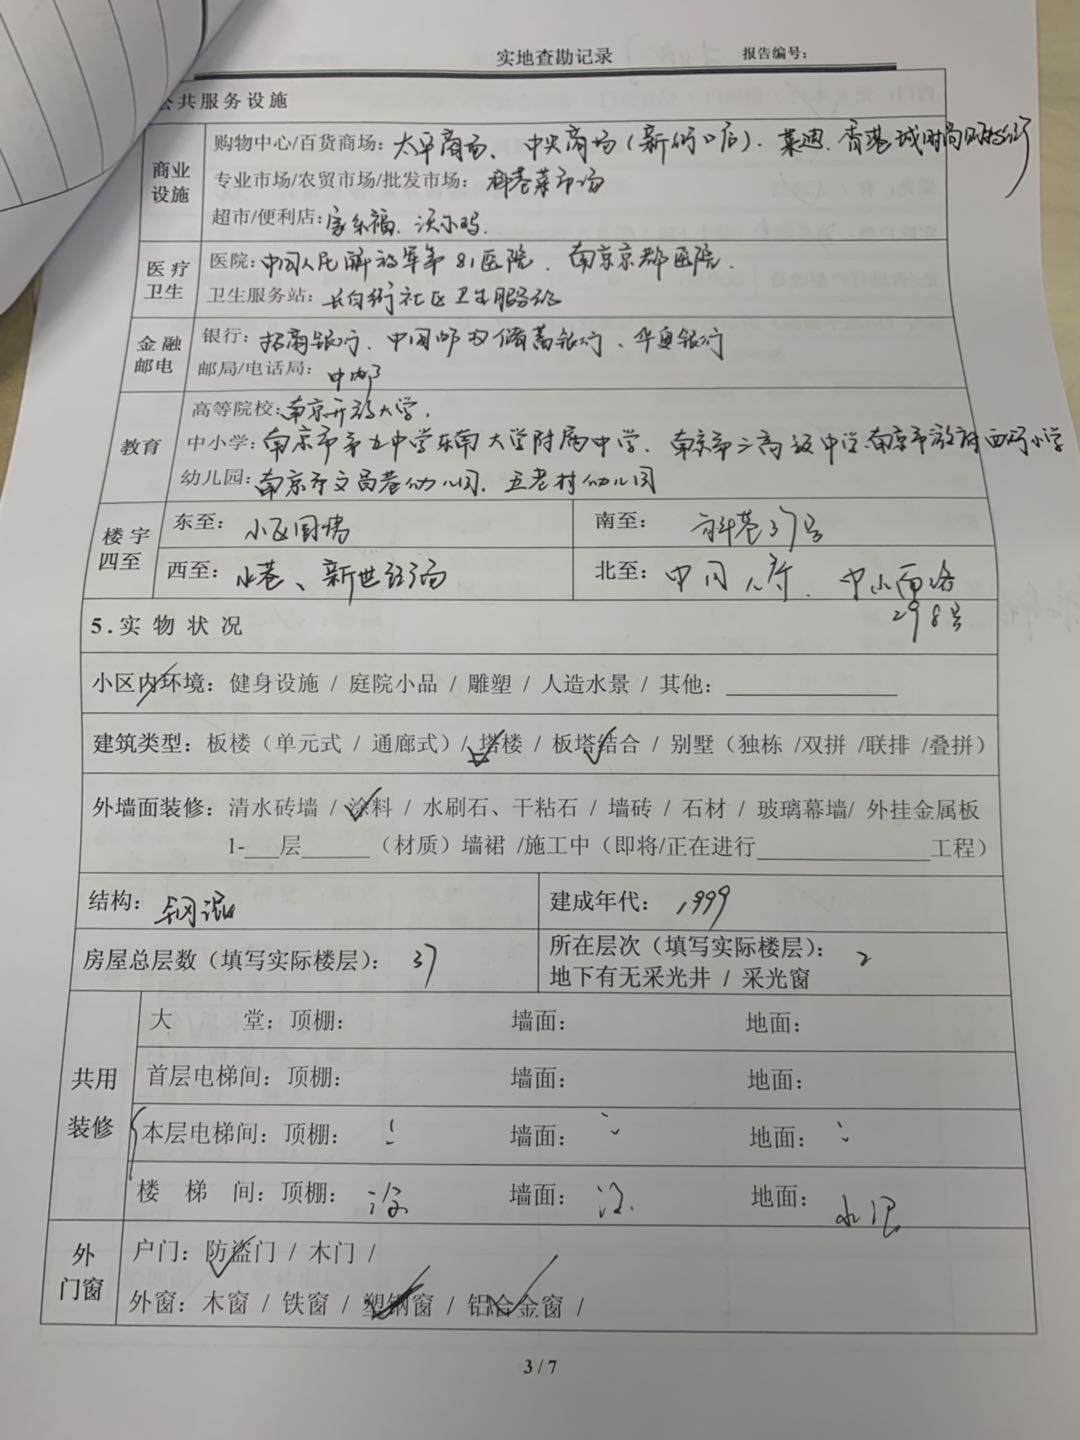 实地查勘记录 报告编号：
公共服务设施
商业设施
购物中心/百货商场：太平商场、中央商场（新街口店）、莱迪、香港城时尚购物街
专业市场/农贸市场/批发市场：科巷菜市场
超市/便利店：家乐福、沃尔玛
医疗卫生
医院：中国人民解放军第81医院、南京京都医院
卫生服务站：长白街社区卫生服务站
金融邮电
银行：招商银行、中国邮政储蓄银行、华夏银行
邮局/电话局：中邮
教育
高等院校：南京开放大学
中小学：南京市第五中学 东南大学附属中学、南京市三高级中学 南京市 小学
幼儿园：南京市文昌巷幼儿园、五老村幼儿园
楼宇四至
东至：小区围墙 南至：科巷37号
西至：小巷、新世纪 北至：中 府、中山南路298号
5.实物状况
小区内环境：健身设施 / 庭院小品 / 雕塑 / 人造水景 / 其他：
建筑类型：板楼（单元式 / 通廊式）/ 塔楼 / 板塔结合 / 别墅（独栋 /双拼 /联排 /叠拼）
外墙面装修：清水砖墙 / 涂料 / 水刷石、干粘石 / 墙砖 / 石材 / 玻璃幕墙/ 外挂金属板
1-___层______（材质）墙裙 /施工中（即将/正在进行_______________工程）
结构：钢混 建成年代：1999
房屋总层数（填写实际楼层）：37 所在层次（填写实际楼层）：2
地下有无采光井 / 采光窗
共用装修
大 堂：顶棚： 墙面： 地面：
首层电梯间：顶棚： 墙面： 地面：
本层电梯间：顶棚： 墙面： 地面：
楼 梯 间：顶棚：涂 墙面：涂 地面：水泥
外门窗
户门：防盗门 / 木门 /
外窗：木窗 / 铁窗 / 塑钢窗 / 铝合金窗 /
3 / 7